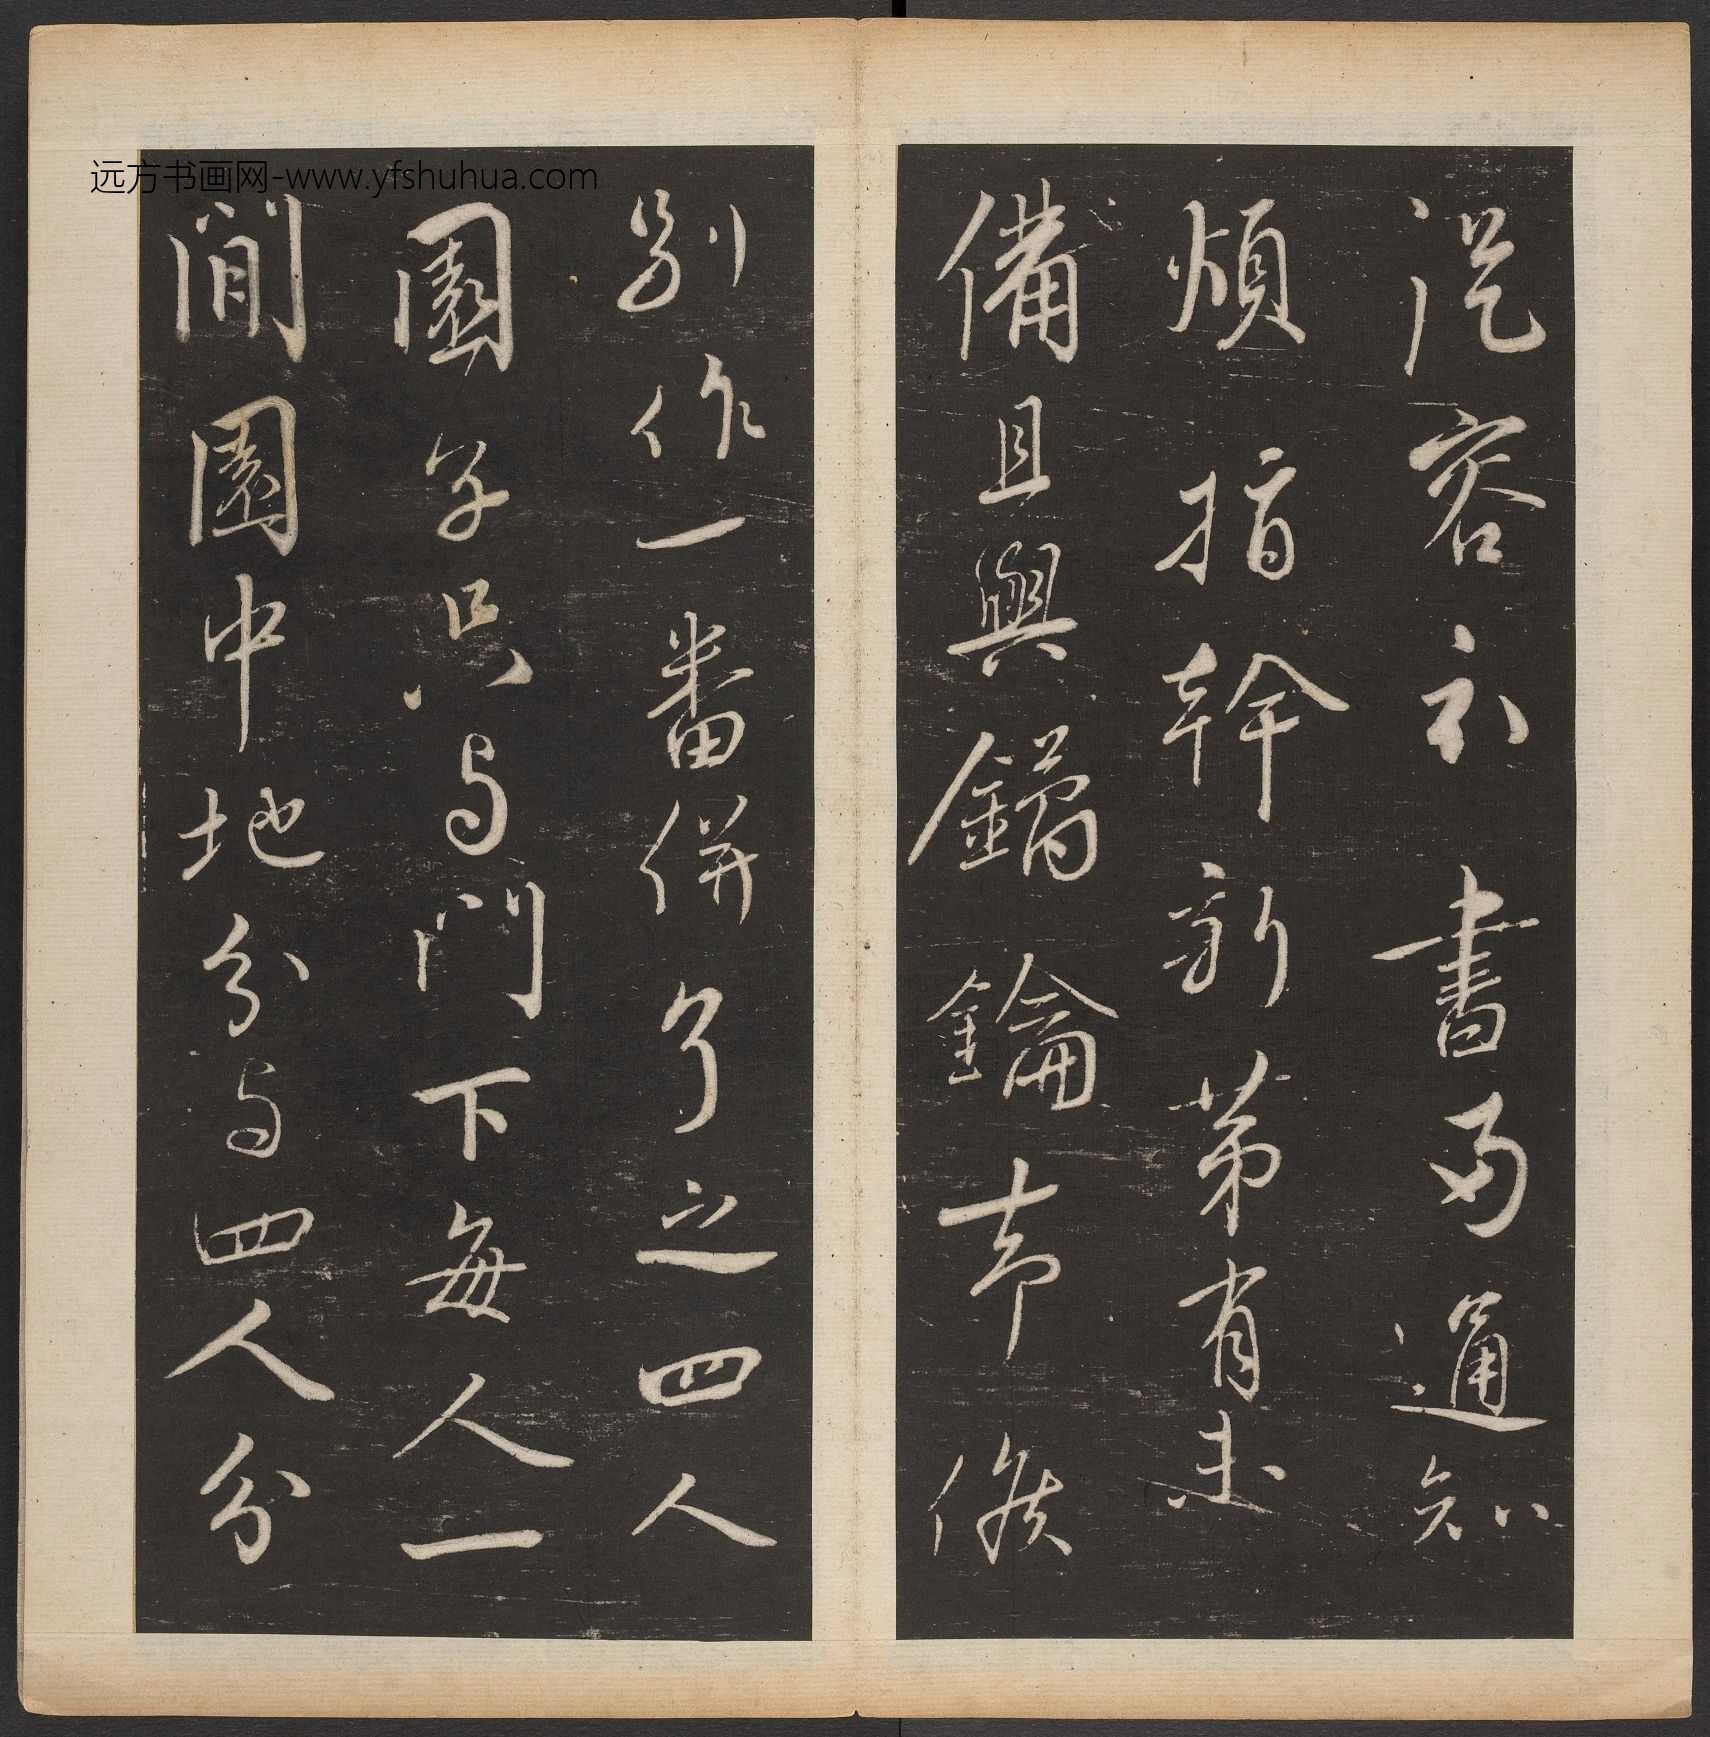 远方书画网-www.yfshuhua.com
從容 書 通知
煩指幹新第有未
備且與鐍鑰却候
別作一番併了之四人
園子只与門下每人一
間園中地分与四人分